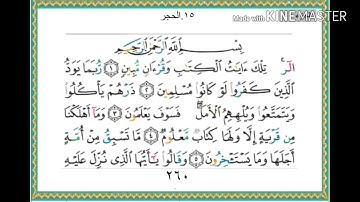 ١٥.الحجر
Made with
KINEMASTER
بِسْمِ اللَّهِ الرَّحْمَٰنِ الرَّحِيمِ
الٓر ۚ تِلْكَ ءَايَٰتُ الْكِتَٰبِ وَقُرْءَانٍ مُّبِينٍ ۝١ رُّبَمَا يَوَدُّ
الَّذِينَ كَفَرُوا لَوْ كَانُوا مُسْلِمِينَ ۝٢ ذَرْهُمْ يَأْكُلُوا
وَيَتَمَتَّعُوا وَيُلْهِهِمُ الْأَمَلُ ۖ فَسَوْفَ يَعْلَمُونَ ۝٣ وَمَا أَهْلَكْنَا
مِن قَرْيَةٍ إِلَّا وَلَهَا كِتَابٌ مَّعْلُومٌ ۝٤ مَّا تَسْبِقُ مِنْ أُمَّةٍ
أَجَلَهَا وَمَا يَسْتَـْٔخِرُونَ ۝٥ وَقَالُوا يَٰٓأَيُّهَا الَّذِى نُزِّلَ عَلَيْهِ
٢٦٠